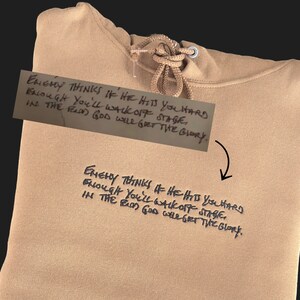 ENEMY THINKS IF HE HITS YOU HARD
ENOUGH YOU'LL WALK OFF STAGE.
IN THE END GOD WILL GET THE GLORY.
ENEMY THINKS IF HE HITS YOU HARD
ENOUGH YOU'LL WALK OFF STAGE.
IN THE END GOD WILL GET THE GLORY.